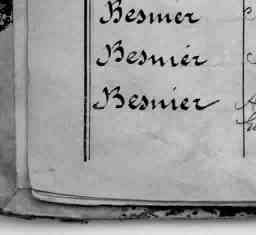 Besnier
Besnier
Besnier